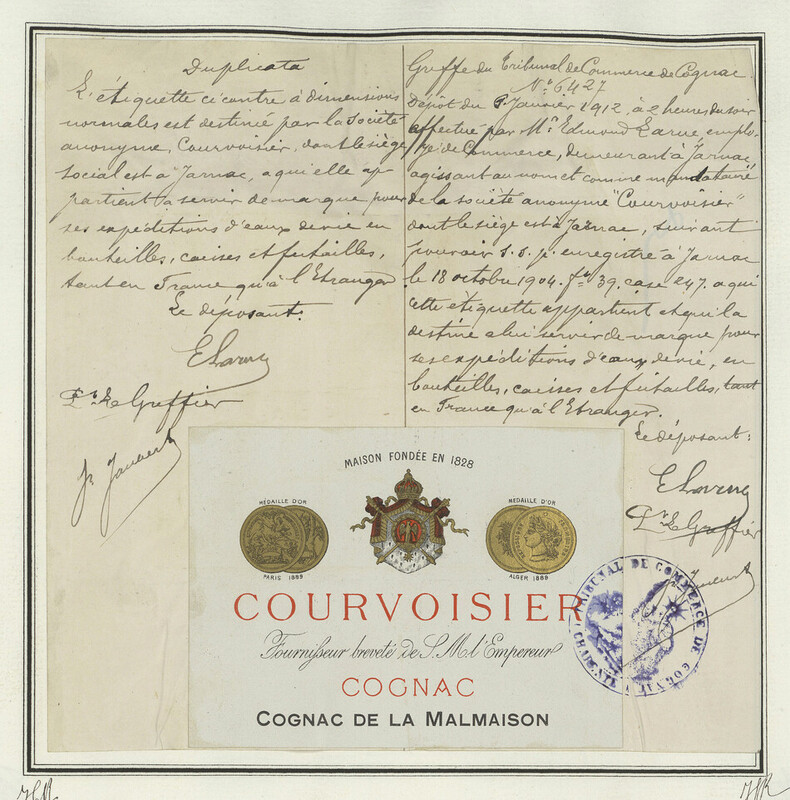 Duplicata
L'étiquette ci contre à dimensions
normales est destiné par la Société
anonyme, Courvoisier, dont le siège
social est à Jarnac, a qui elle ap
partient a servir de marque pour
ses expéditions d'eaux de vie en
bouteilles, caisses et futailles,
tant en France qu'à l'Etranger
Le déposant:
E Larue
Pr. Le Greffier
Greffe du Tribunal de Commerce de Cognac
No 6427
Dépôt du Janvier 1912, à 2 heures du soir
effectué par Mr. Edmond Larue, emplo-
yé de Commerce, demeurant à Jarnac
agissant au nom et comme mandataire
de la société anonyme "Courvoisier"
dont le siège est à Jarnac, suivant
pouvoir s. s. p. enregistré à Jarnac
le 18 octobre 1904. fo 39, case 247. a qui
cette etiquette appartient et qui la
destine a lui servir de marque pour
ses expéditions d'eaux de vie, en
bouteilles, caisses et futailles, tant
en France qu'à l'Etranger.
Le déposant:
E Larue
Pr. Le Greffier
MAISON FONDÉE EN 1828
MÉDAILLE D'OR
PARIS 1889
MÉDAILLE D'OR
ALGER 1889
COURVOISIER
Fournisseur breveté de S. M. l'Empereur
COGNAC
COGNAC DE LA MALMAISON
TRIBUNAL DE COMMERCE DE COGNAC